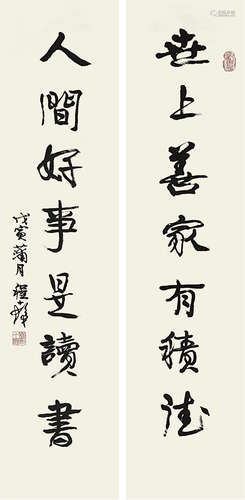 世上善家有積德
人間好事是讀書
戊寅蒲月程